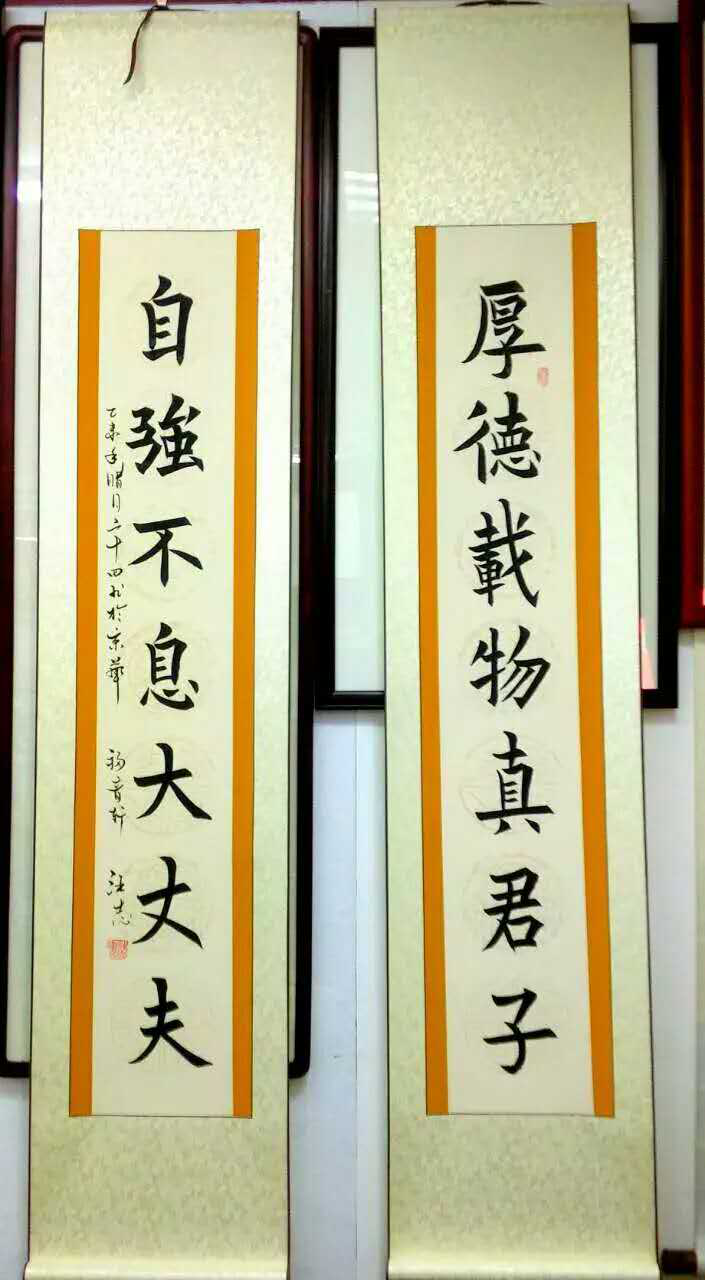 厚德載物真君子
自強不息大丈夫
乙未年腊月二十四於京華
汪志